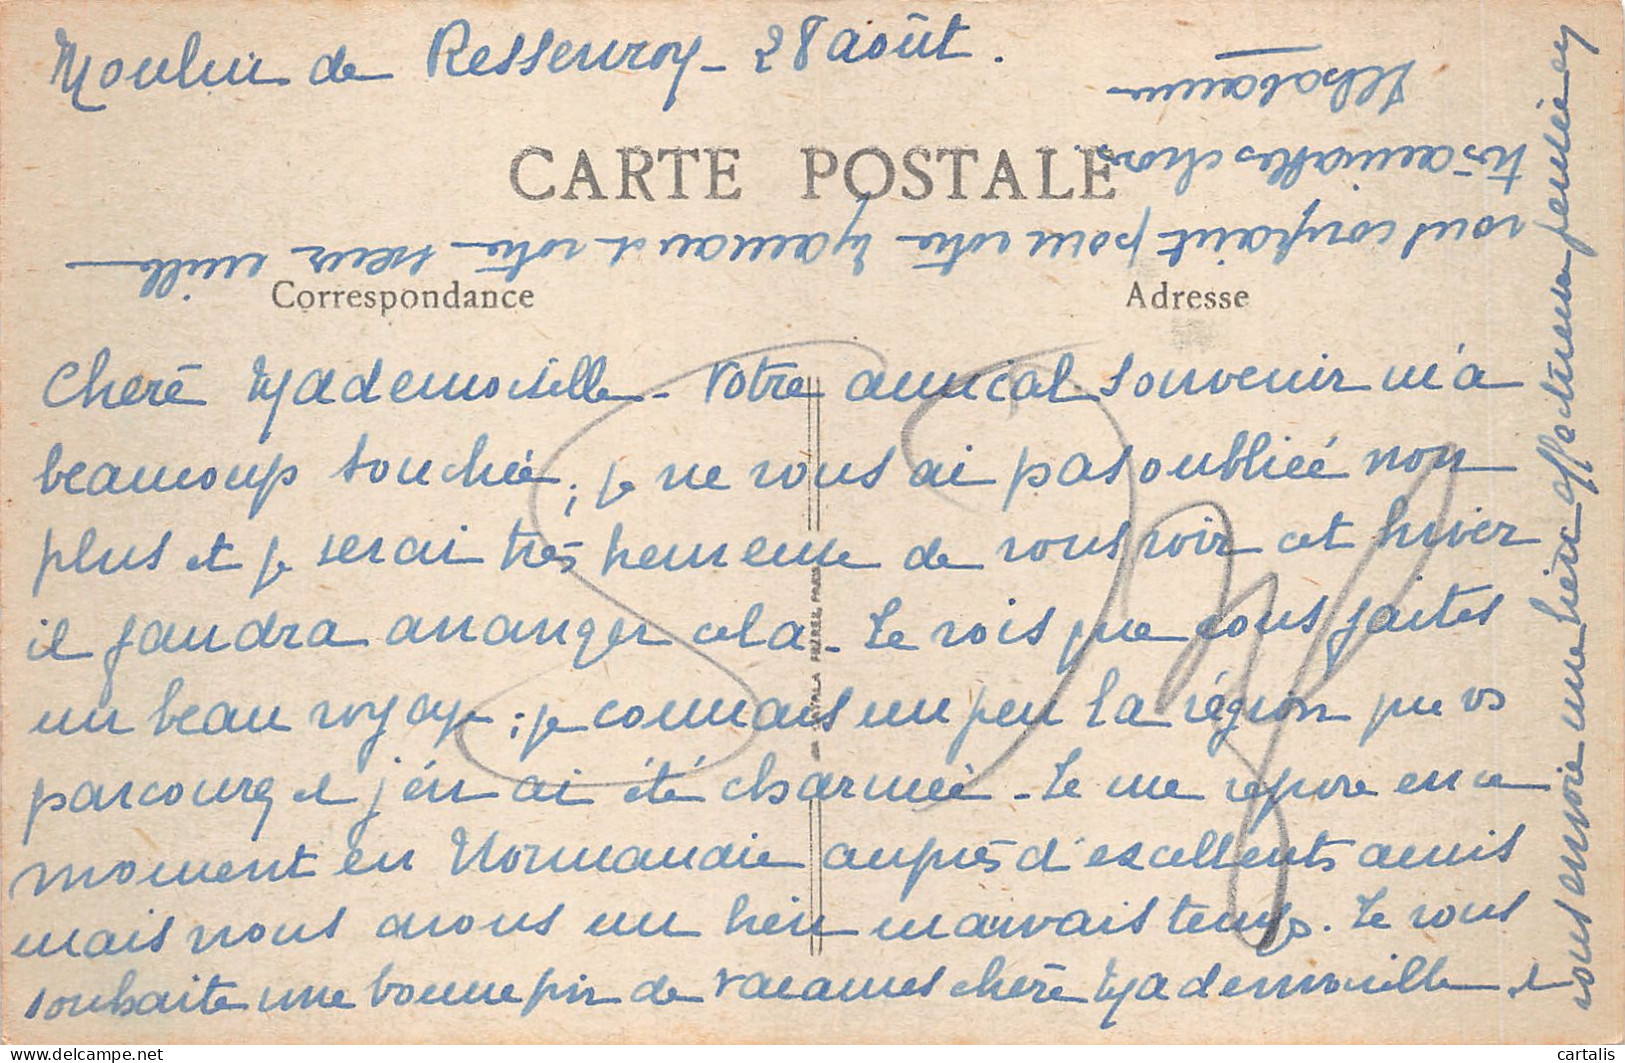 Moulin de Ressenroy - 28 août.
CARTE POSTALE
Correspondance
Adresse
Chère Mademoiselle - Votre amical souvenir m'a
beaucoup touchée ; je ne vous ai pas oubliée non
plus et je serai très heureuse de vous voir cet hiver
il faudra arranger cela - Je vois que vous faites
un beau voyage ; je connais un peu la région que vs
parcourez et j'en ai été charmée - Je me repose en ce
moment en Normandie auprès d'excellents amis
mais nous avons un bien mauvais temps. Je vous
souhaite une bonne fin de vacances chère Mademoiselle et
vous envoie une bien affectueuse pensée en
vous confiant pour votre Maman et votre sœur mille
très aimables choses.
CATALA FRÈRES, PARIS
cartalis